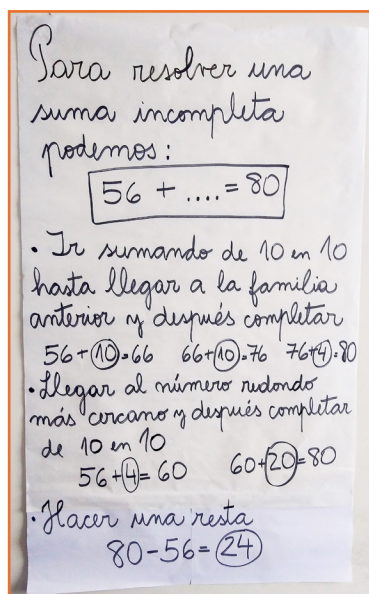 Para resolver una
suma incompleta
podemos:
56 + .... = 80
• Ir sumando de 10 en 10
hasta llegar a la familia
anterior y después completar
56+10=66 66+10=76 76+4=80
• Llegar al número redondo
más cercano y después completar
de 10 en 10
56+4=60 60+20=80
• Hacer una resta
80-56=24